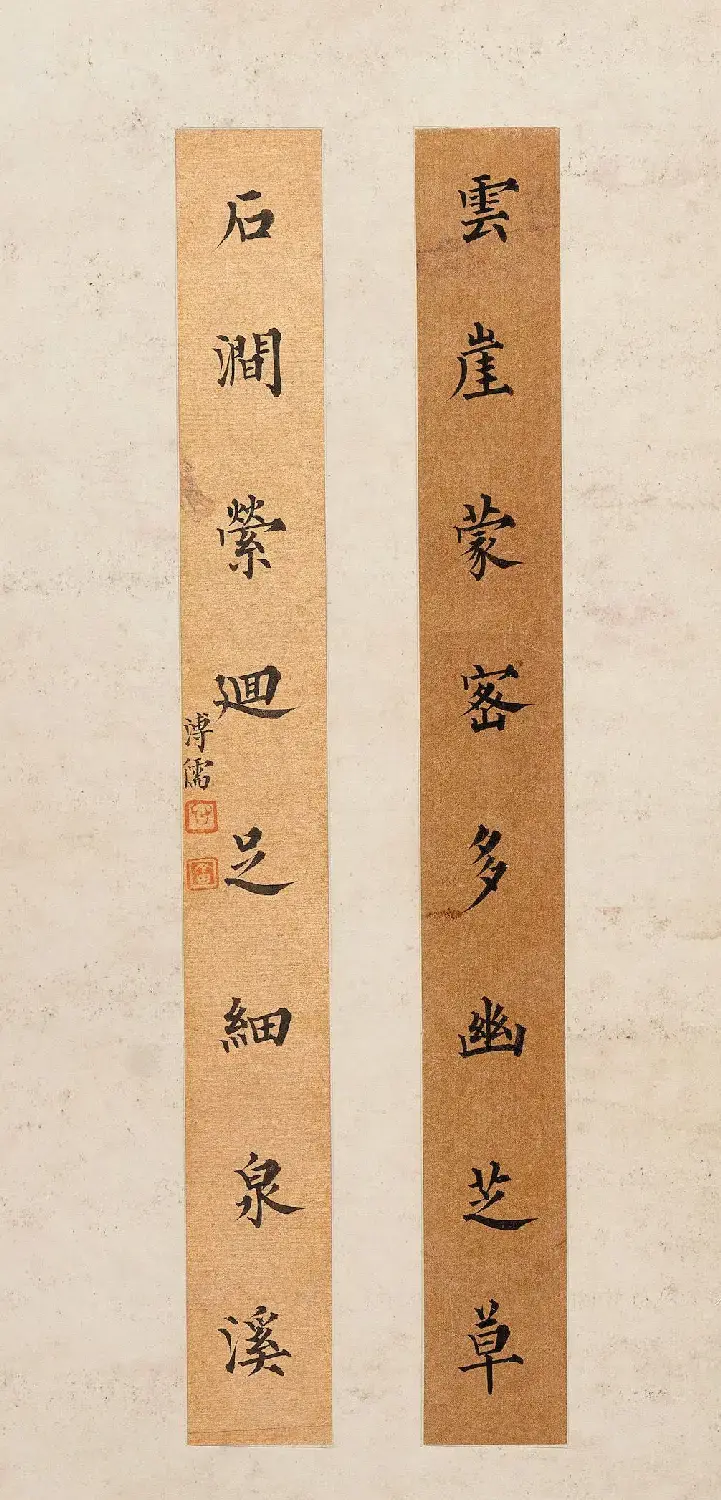 雲崖蒙密多幽芝草
石澗縈迴足細泉溪
溥儒